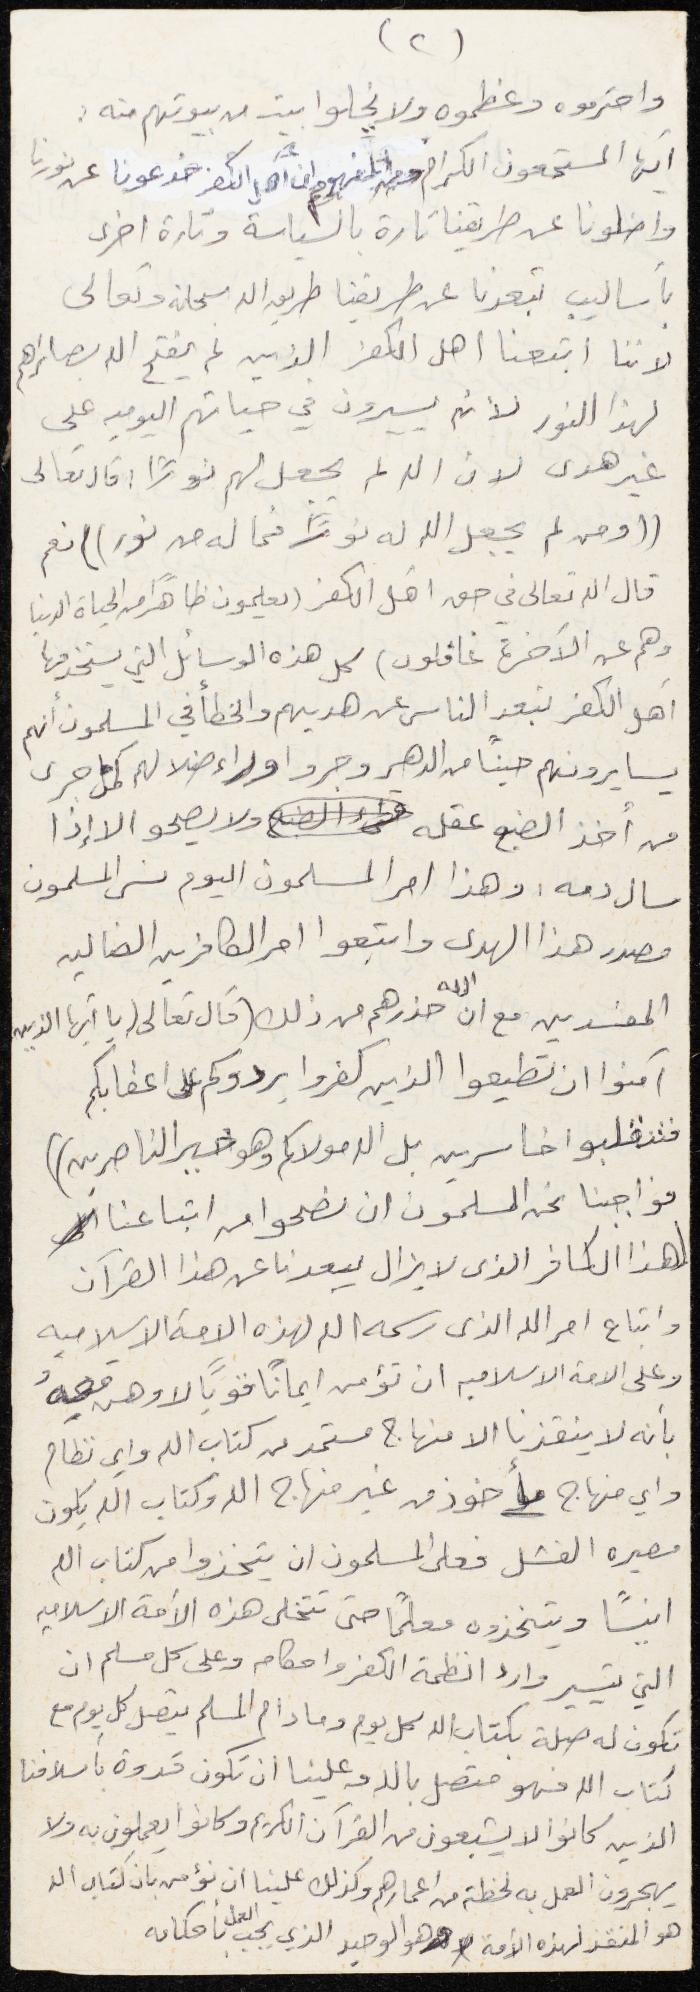 (٢)
واحترموه وعظموه ولا تخلوا بيت من بيوتهم منه :
أيها المستمعون الكرام ومن المفهوم ان أهل الكفر خدعونا عن نورنا
واضلونا عن طريقنا تارة بالسياسة وتارة اخرى
بأساليب تبعدنا عن طريقنا طريق الله سبحانه وتعالى
لاننا اتبعنا اهل الكفر الذين لم يفتح الله بصائرهم
لهذا النور لأنهم يسيرون في حياتهم اليوميه على
غير هدى لان الله لم يجعل لهم نورًا : قال تعالى
((ومن لم يجعل الله له نورًا فما له من نور)) نعم
قال الله تعالى في حق اهل الكفر (يعلمون ظاهرًا من الحياة الدنيا
وهم عن الآخرة غافلون) كل هذه الوسائل التي يستخدمها
أهل الكفر تبعد الناس عن هديهم والخطأ في المسلمون أنهم
يسايرونهم حينًا من الدهر وجروا وراء ضلالهم كمثل جرى
من أخذ الضبع عقله ولا يصحو الا إذا
سال دمه : وهذا امر المسلمون اليوم نسى المسلمون
مصدر هذا الهدى واتبعوا امر الكافرين الضالين
المفسدين مع ان الله حذرهم من ذلك (قال تعالى (يا أيها الذين
آمنوا ان تطيعوا الذين كفروا يردوكم على اعقابكم
فتنقلبوا خاسرين بل الله مولاكم وهو خير الناصرين))
فواجبنا نحن المسلمون ان نصحوا من اتباعنا
لهذا الكافر الذى لا يزال يبعدنا عن هذا القرآن
واتباع امر الله الذى رسمه الله لهذه الامة الاسلاميه
وعلى الامة الاسلاميه ان تؤمن ايمانًا قويًا لا وهن فيه
بأنه لا ينقذنا الا منهاج مستمد من كتاب الله واي نظام
واي منهاج مأخوذ من غير منهاج الله وكتاب الله يكون
مصيره الفشل فعلى المسلمون ان يتخذوا من كتاب الله
انيسًا ويتخذوه معلمًا حتى تتخلى هذه الأمة الاسلاميه
التي تسير وراء انظمة الكفر واحكامه وعلى كل مسلم ان
تكون له صلة بكتاب الله كل يوم وما دام المسلم يتصل كل يوم مع
كتاب الله فهو متصل بالله وعلينا ان تكون قدوة بأسلافنا
الذين كانوا لا يشبعون من القرآن الكريم وكانوا يعملون به ولا
يهجرون العمل به لحظة من اعمارهم وكذلك علينا ان نؤمن بان كتاب الله
هو المنقذ لهذه الأمة وهو الوحيد الذي يجب العمل بأحكامه